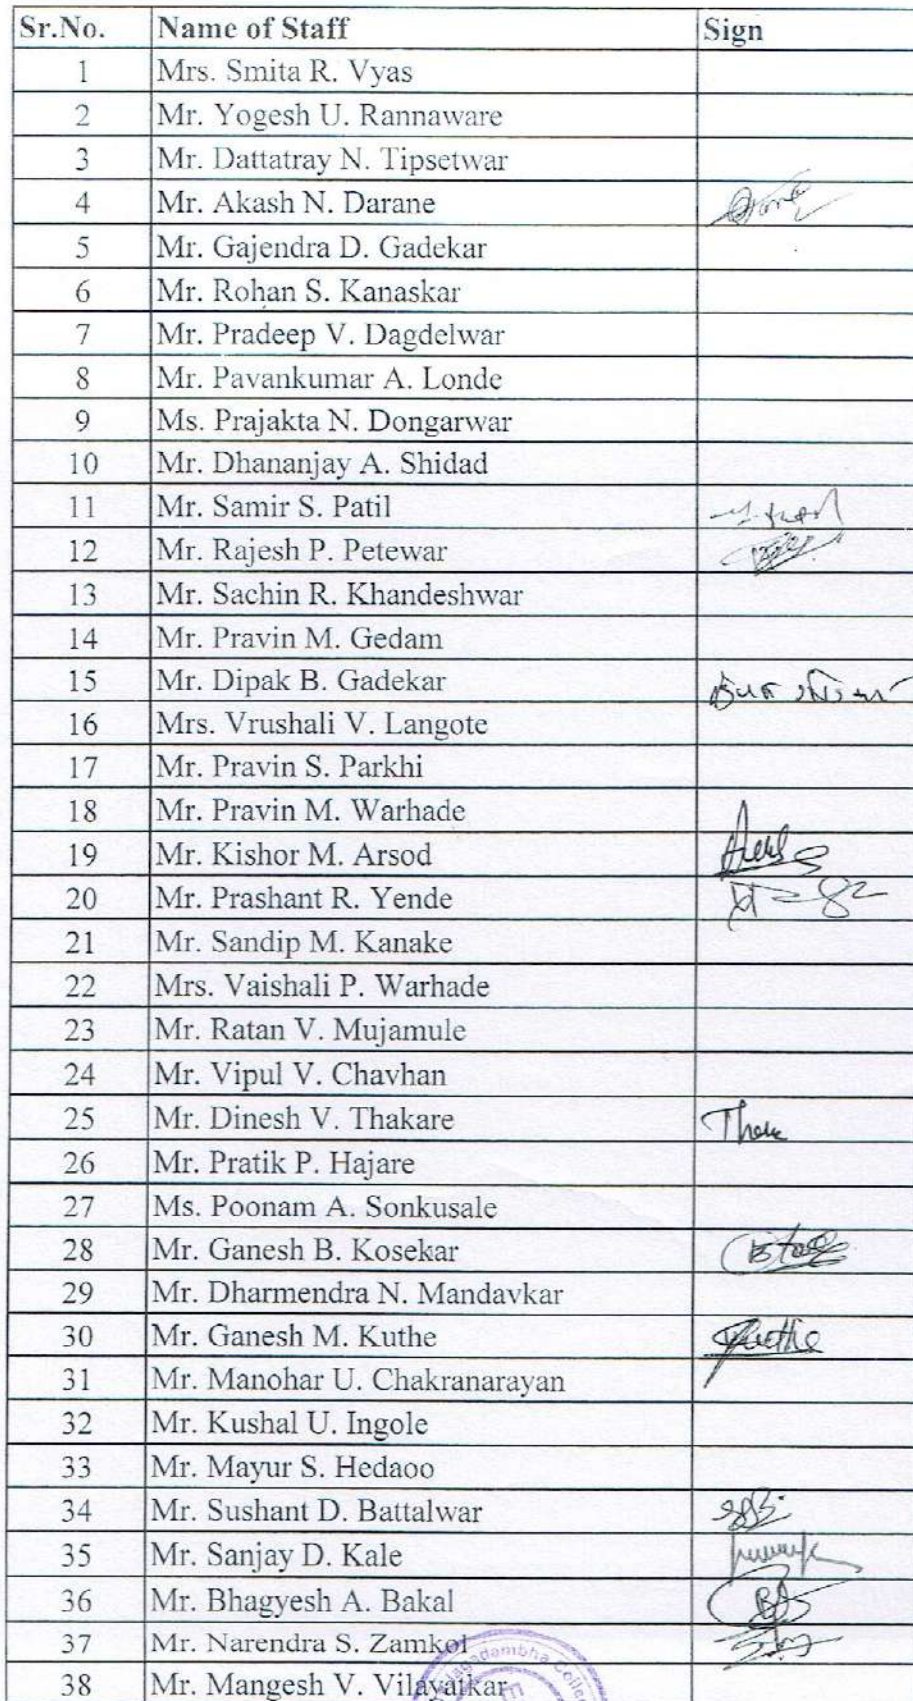 Sr.No. Name of Staff Sign
1 Mrs. Smita R. Vyas
2 Mr. Yogesh U. Rannaware
3 Mr. Dattatray N. Tipsetwar
4 Mr. Akash N. Darane
5 Mr. Gajendra D. Gadekar
6 Mr. Rohan S. Kanaskar
7 Mr. Pradeep V. Dagdelwar
8 Mr. Pavankumar A. Londe
9 Ms. Prajakta N. Dongarwar
10 Mr. Dhananjay A. Shidad
11 Mr. Samir S. Patil
12 Mr. Rajesh P. Petewar
13 Mr. Sachin R. Khandeshwar
14 Mr. Pravin M. Gedam
15 Mr. Dipak B. Gadekar
16 Mrs. Vrushali V. Langote
17 Mr. Pravin S. Parkhi
18 Mr. Pravin M. Warhade
19 Mr. Kishor M. Arsod
20 Mr. Prashant R. Yende
21 Mr. Sandip M. Kanake
22 Mrs. Vaishali P. Warhade
23 Mr. Ratan V. Mujamule
24 Mr. Vipul V. Chavhan
25 Mr. Dinesh V. Thakare
26 Mr. Pratik P. Hajare
27 Ms. Poonam A. Sonkusale
28 Mr. Ganesh B. Kosekar
29 Mr. Dharmendra N. Mandavkar
30 Mr. Ganesh M. Kuthe
31 Mr. Manohar U. Chakranarayan
32 Mr. Kushal U. Ingole
33 Mr. Mayur S. Hedaoo
34 Mr. Sushant D. Battalwar
35 Mr. Sanjay D. Kale
36 Mr. Bhagyesh A. Bakal
37 Mr. Narendra S. Zamkol
38 Mr. Mangesh V. Vilayatkar